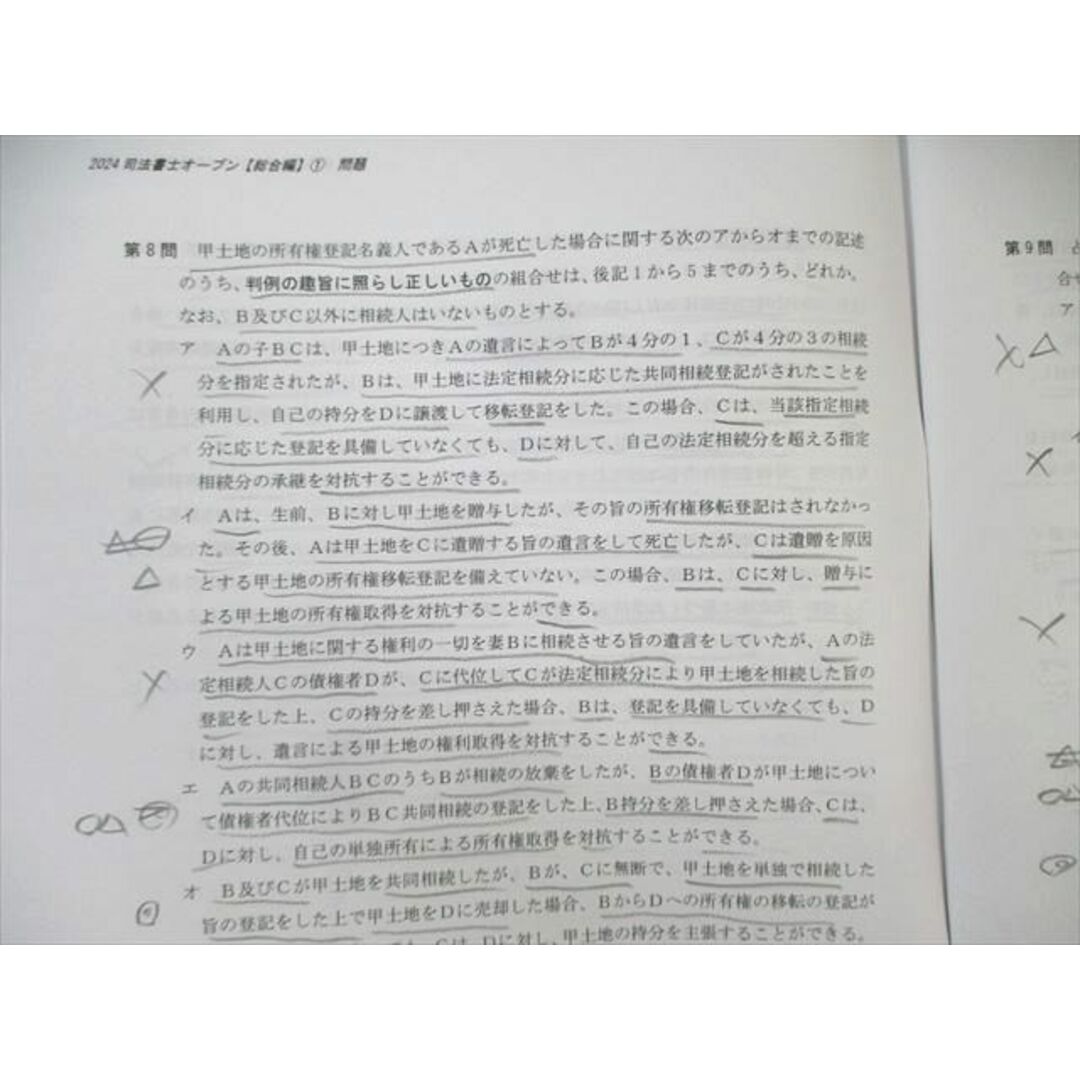 2024 司法書士オープン【総合編】① 問題
第8問 甲土地の所有権登記名義人であるAが死亡した場合に関する次のアからオまでの記述
のうち、判例の趣旨に照らし正しいものの組合せは、後記1から5までのうち、どれか。
なお、B及びC以外に相続人はいないものとする。
ア Aの子BCは、甲土地につきAの遺言によってBが4分の1、Cが4分の3の相続
分を指定されたが、Bは、甲土地に法定相続分に応じた共同相続登記がされたことを
利用し、自己の持分をDに譲渡して移転登記をした。この場合、Cは、当該指定相続
分に応じた登記を具備していなくても、Dに対して、自己の法定相続分を超える指定
相続分の承継を対抗することができる。
イ Aは、生前、Bに対し甲土地を贈与したが、その旨の所有権移転登記はされなかっ
た。その後、Aは甲土地をCに遺贈する旨の遺言をして死亡したが、Cは遺贈を原因
とする甲土地の所有権移転登記を備えていない。この場合、Bは、Cに対し、贈与に
よる甲土地の所有権取得を対抗することができる。
ウ Aは甲土地に関する権利の一切を妻Bに相続させる旨の遺言をしていたが、Aの法
定相続人Cの債権者Dが、Cに代位してCが法定相続分により甲土地を相続した旨の
登記をした上、Cの持分を差し押さえた場合、Bは、登記を具備していなくても、D
に対し、遺言による甲土地の権利取得を対抗することができる。
エ Aの共同相続人BCのうちBが相続の放棄をしたが、Bの債権者Dが甲土地につい
て債権者代位によりBC共同相続の登記をした上、B持分を差し押さえた場合、Cは、
Dに対し、自己の単独所有による所有権取得を対抗することができる。
オ B及びCが甲土地を共同相続したが、Bが、Cに無断で、甲土地を単独で相続した
旨の登記をした上で甲土地をDに売却した場合、BからDへの所有権の移転の登記が
ても、Cは、Dに対し、甲土地の持分を主張することができる。
第9問
合せ
ア